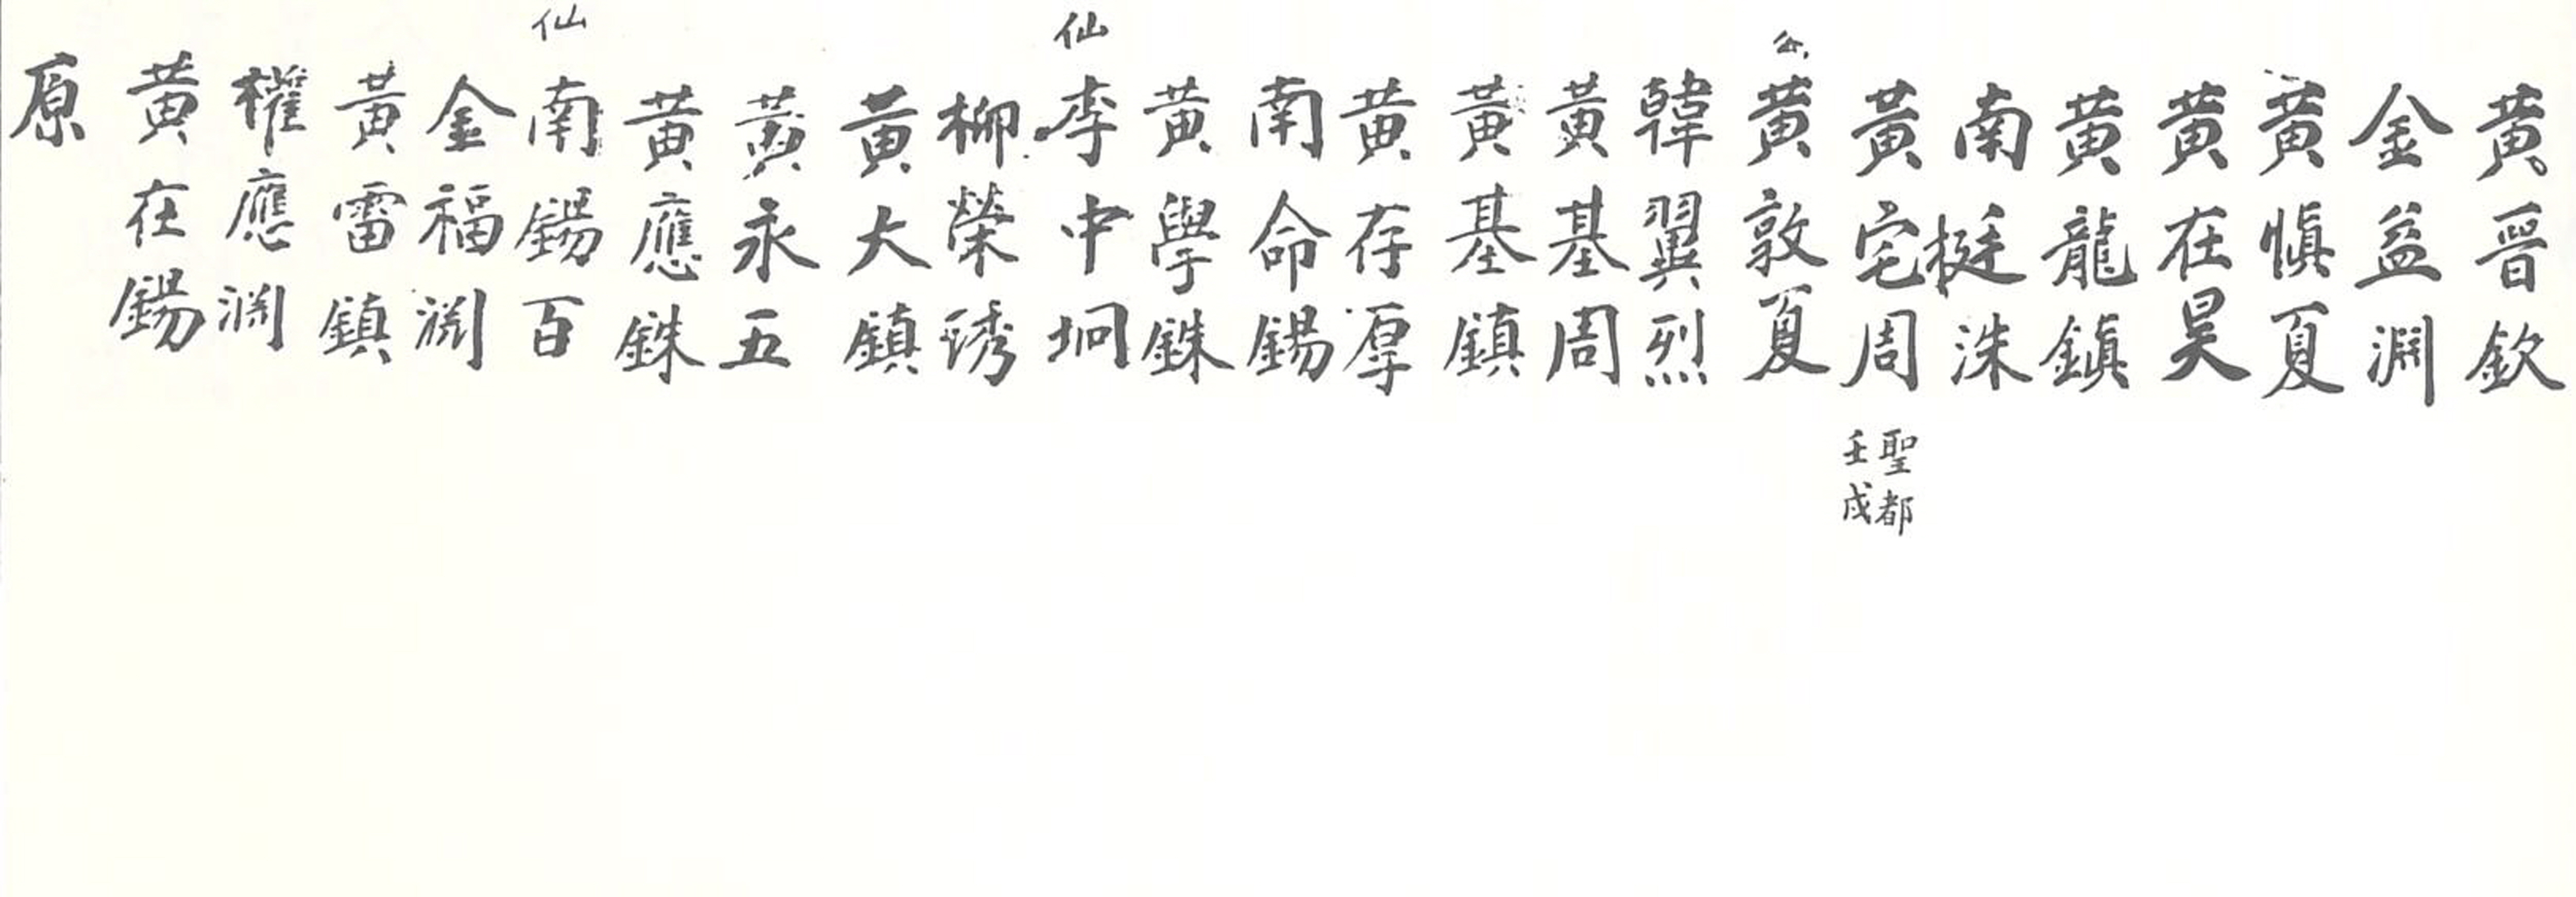 黃晉欽
金益淵
黃愼夏
黃在昊
黃龍鎭
南挺洙
黃宅周 聖都 壬戌
黃敦夏
韓翼烈
黃基周
黃基鎭
黃存厚
南命錫
黃學銖
仙 李中坰
柳榮琇
黃大鎭
黃永五
黃應銖
仙 南錫百
金福淵
黃雷鎭
權應淵
黃在錫
原